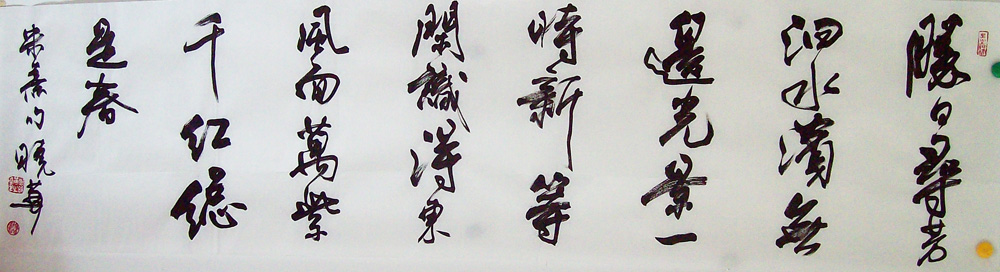 勝日尋芳
泗水濱無
邊光景一
時新等
閑識得東
風面萬紫
千红總
是春
朱熹句曉華